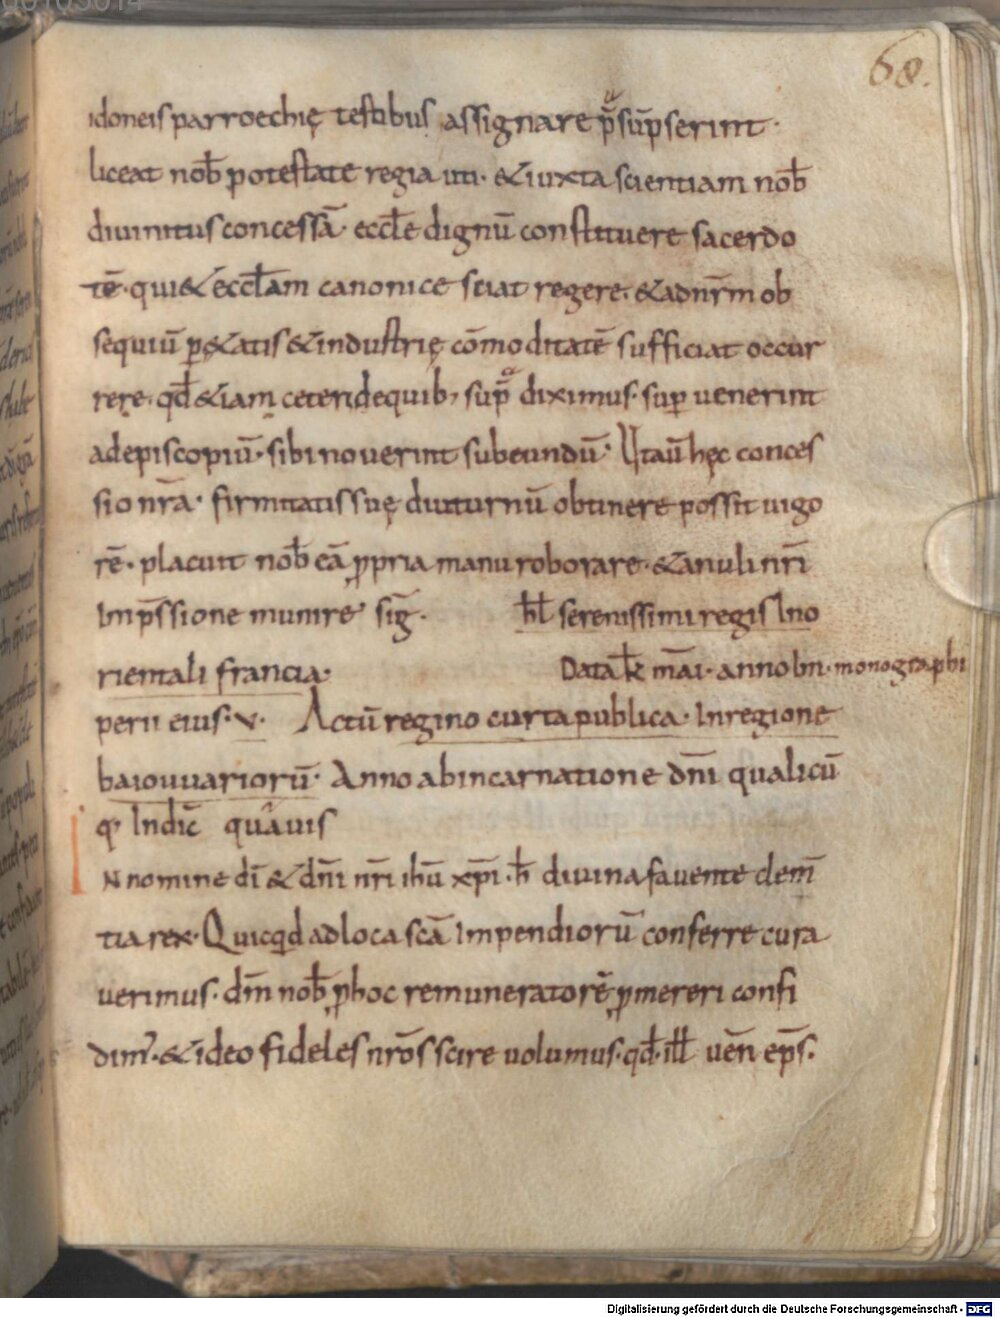 68.
idoneis parroechię testibus assignare p̄sūpserint·
liceat nob̄ potestate regia uti· & iuxta scientiam nob̄
diuinitus concessā· eccl̄e dignū constituere sacerdo
tē· qui & eccl̄am canonice sciat regere· & ad nr̄m ob
sequiū p̲ &atis & industrię cōmoditatē sufficiat occur
rere· qd̄ & iam ceteri de quib; sup̄ᵃ diximus· sup̲ uenerint
ad episcopiū· sibi nouerint subeundū· Ut aū hęc conces
sio nr̄a· firmitatis suę diuturnū obtinere possit uigo
rē· placuit nob̄ eā ꝓpria manu roborare· & anuli nr̄i
Imp̄ssione munire· siḡ· h̄l serenissimi regis In o
rientali francia· Data k̄ māi· anno bn· monographi
perii eius· v· Actū regino curta publica· In regione
baiouuariorū· Anno ab incarnatione dn̄i qualicū
q· Indic̄ quāuis
IN nomine dī & dn̄i nr̄i ihū xp̄i· h̄ divina fauente clem̄
tia rex· Quicq̄d ad loca sc̄ā Impendiorū conferre cura
uerimus· dm̄ nob̄ ꝓ hoc remuneratorē ꝓmereri confi
dim᾿· & ideo fideles nr̄os scire uolumus· qd̄· ill̄ uen̄ ep̄s·
Digitalisierung gefördert durch die Deutsche Forschungsgemeinschaft - DFG